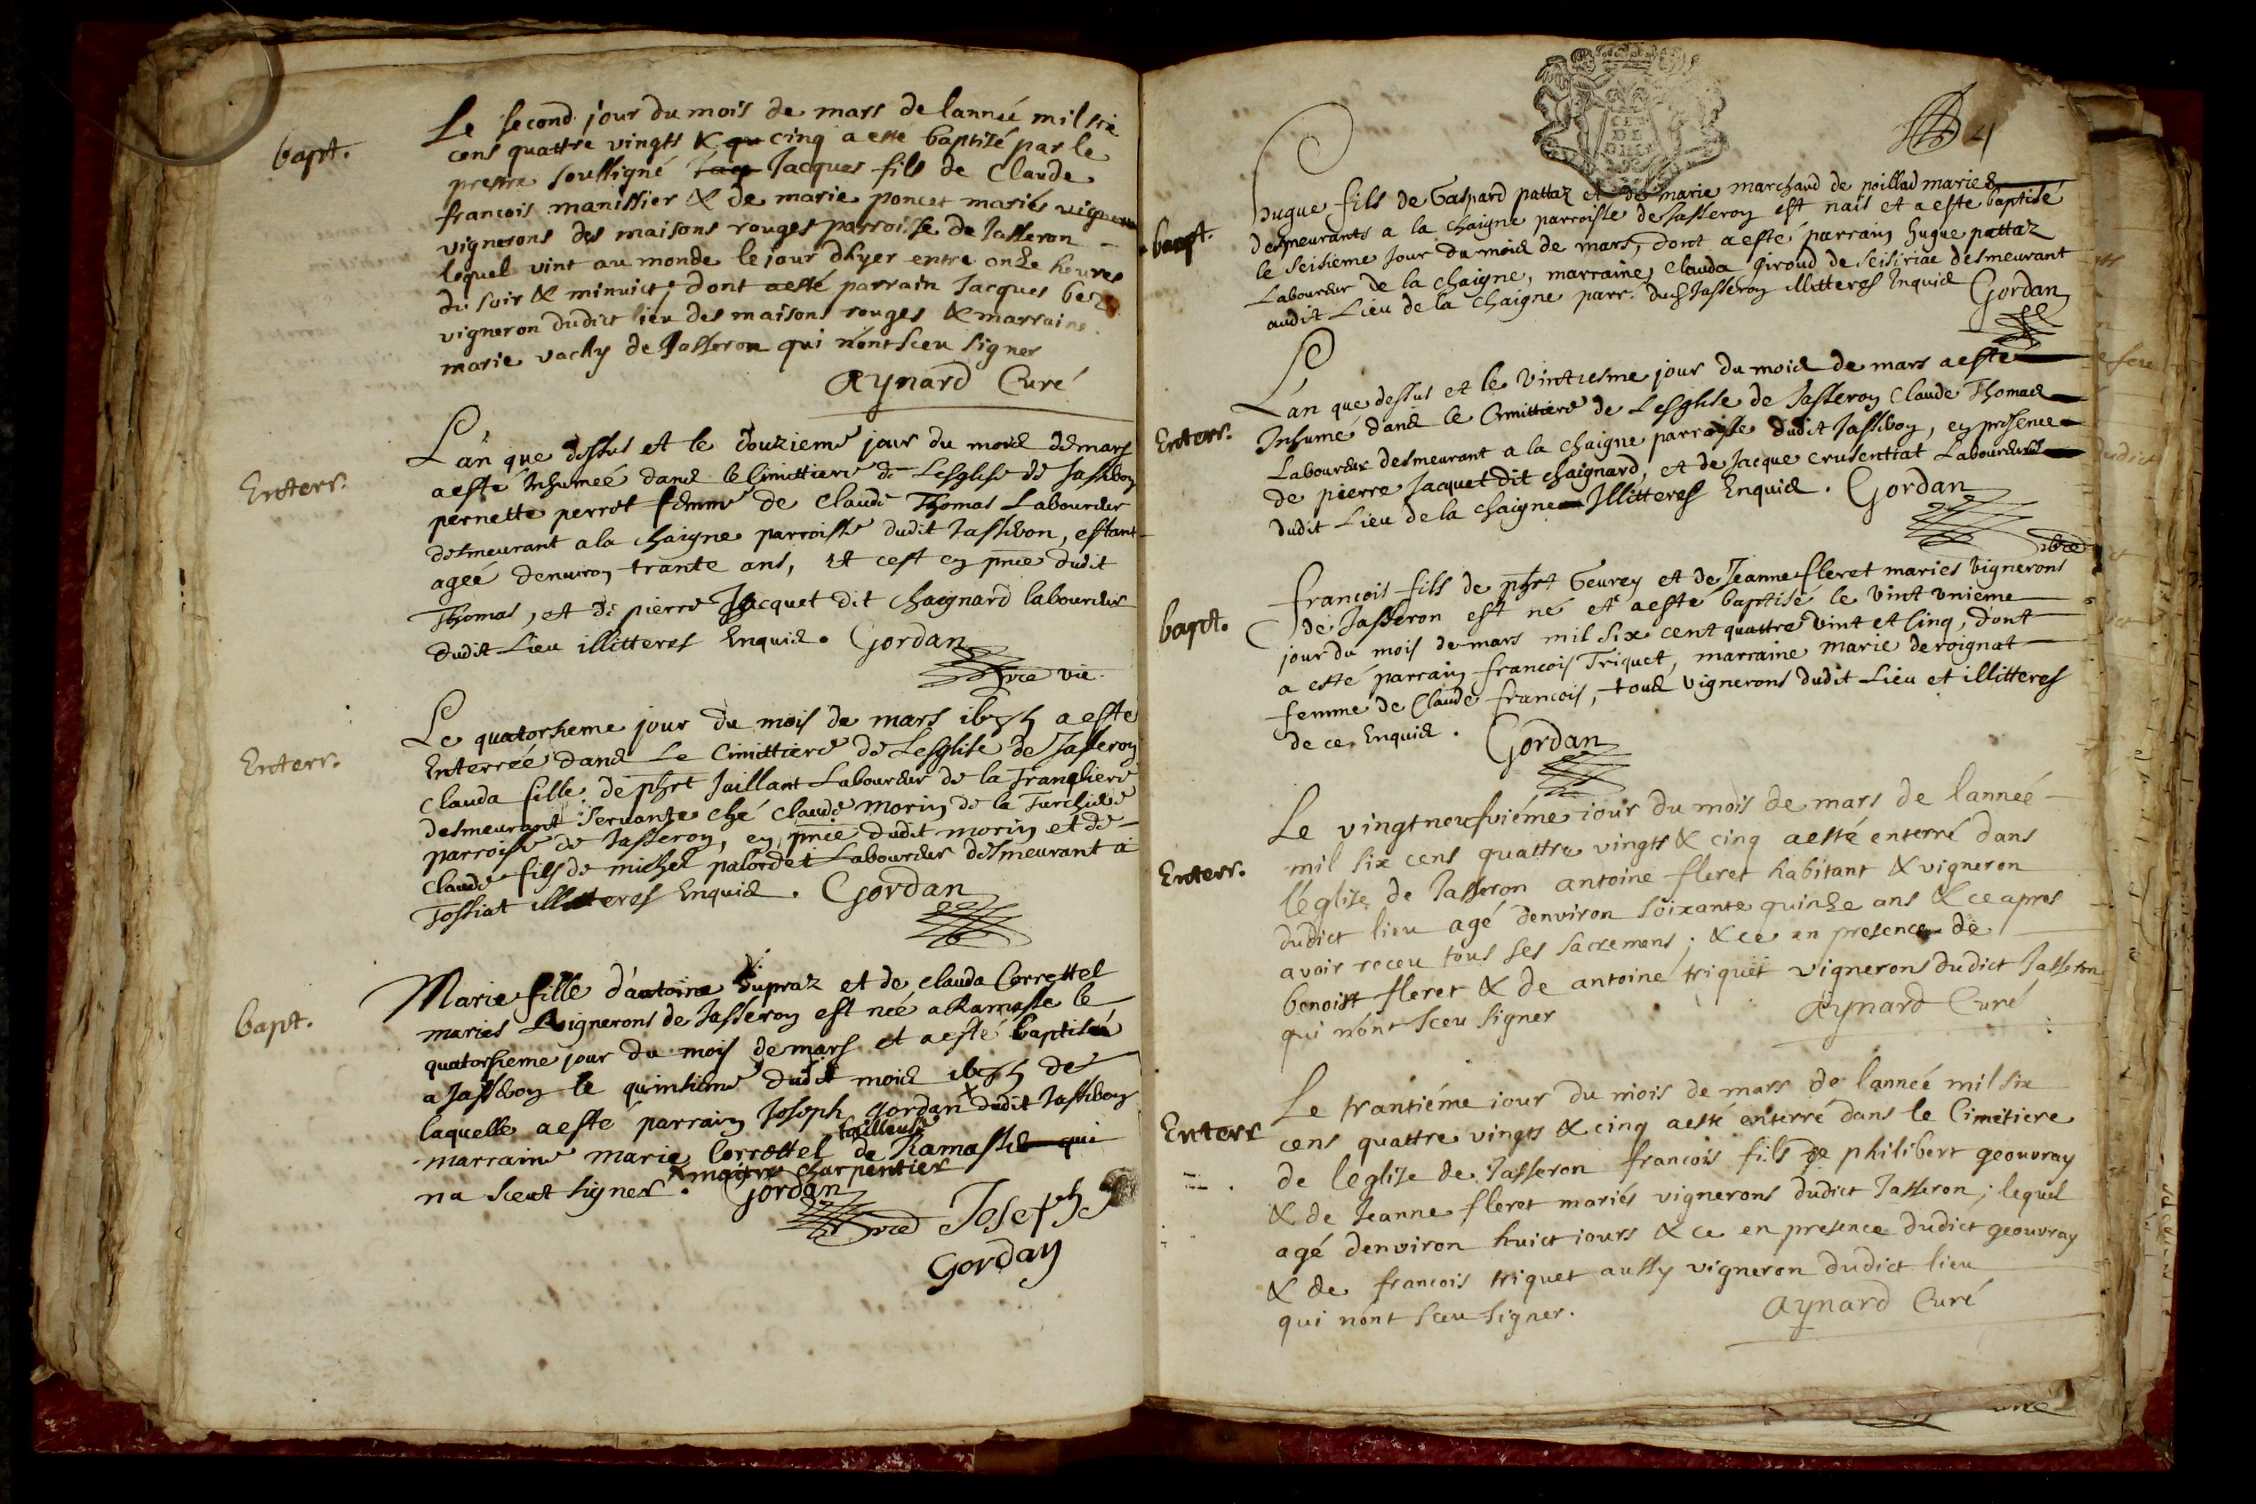 bapt.
Le second jour du mois de mars de lannée mil six
cens quattre vingts & qu cinq a esté baptizé par le
prestre soussigné Jaq Jacques fils de Claude
francois manissier & de marie poncet mariés vigneron
vignerons des maisons rouges parroisse de Jasseron
lequel vint au monde le jour dhyer entre onze heures
du soir & minuict, dont a esté parrain Jacques
vigneron dudict lieu des maisons rouges & marraine
marie vachy de Jasseron qui n'ont sceu signer
Aynard Curé
Enterr.
L'an que dessus et le douzieme jour du mois de mars
a esté Inhumeé dans le Cimittiere de Lesglise de Jasseron
pernette perret femme de Claude Thomas Laboureur
desmeurant a la Chaigne parroisse dudit Jasseron, estant
ageé denviron trante ans, et cest en pnce dudit
Thomas, et de pierre Jacquet dit Chaignard laboureur
dudit Lieu illitteres Enquis. Gordan
vre vic.
Enterr.
Le quatorsieme jour du mois de mars 1685 a esté
Enterreé dans Le Cimittiere de Lesglise de Jasseron
Clauda fille de phrt Jaillant Laboureur de la Tranqliere
desmeurant servante ché Claude morin de la
parroisse de Jasseron, en pnce dudit morin et de
Claude fils de michel palordet Laboureur desmeurant a
Tossiat illitteres Enquis. Gordan
bapt.
Marie fille d'antoine Dupraz et de Clauda Correttel
mariés vignerons de Jasseron est née a Ramasse le
quatorsieme jour du mois de mars et a esté baptisée
a Jasseron le quinsieme dudit mois 1685 de
laquelle a esté parrain Joseph Gordan x dudit Jasseron
tailleuse
marraine marie Correttel de Ramasse qui
x maitre charpentier
na sceut signer. Gordan
vre Joseph
Gordan
4
bapt.
hugue fils de Gaspard pattaz et de marie marchand de poillad mariés
desmeurants a la Chaigne parroisse de Jasseron est nais et a esté baptisé
le seisieme Jour du mois de mars, dont a esté parrain hugue pattaz
Laboureur de la Chaigne, marraine, Clauda Giroud de seisiriae desmeurant
audit Lieu de la Chaigne parr. dud Jasseron illitteres Enquis Gordan
Enterr.
L'an que dessus et le Vintiesme jour du mois de mars a esté
Inhumé dans le Cimittiere de Lesglise de Jasseron Claude Thomas
Laboureur desmeurant a la Chaigne parroisse dudit Jasseron, en presence
de pierre Jacquet dit Chaignard, et de Jacque crusenttat Laboureurs
dudit Lieu de la Chaigne Illitteres Enquis. Gordan
bapt.
francois fils de phrt Geurey et de Jeanne fleret mariés Vignerons
de Jasseron est né et a esté baptisé le vint unieme
jour du mois de mars mil six cent quattre vint et sinq, dont
a esté parrain francois Triquet, marraine marie deroignat
femme de Claude francois, tous vignerons dudit Lieu et illitteres
de ce, Enquis. Gordan
Enterr.
Le vingt neufviéme iour du mois de mars de lanneé
mil six cens quattre vingts & cinq a esté enterré dans
l'eglize de Jasseron antoine fleret habitant & vigneron
dudict lieu agé denviron soixante quinze ans & ce apres
avoir receu tous ses sacremens; & ce en presence de
benoist fleret & de antoine triquet vignerons dudict Jasseron
qui n'ont sceu signer
Aynard Curé
Enterr
Le trantiéme iour du mois de mars de l'anneé mil six
cens quattre vingts & cinq a esté enterré dans le Cimetiere
de leglize de Jasseron francois fils de philibert geouvray
& de Jeanne fleret mariés vignerons dudict Jasseron; lequel
agé denviron huict iours & ce en presence dudict geouvray
& de francois triquet aussy vigneron dudict lieu
qui n'ont sceu signer.
Aynard Curé